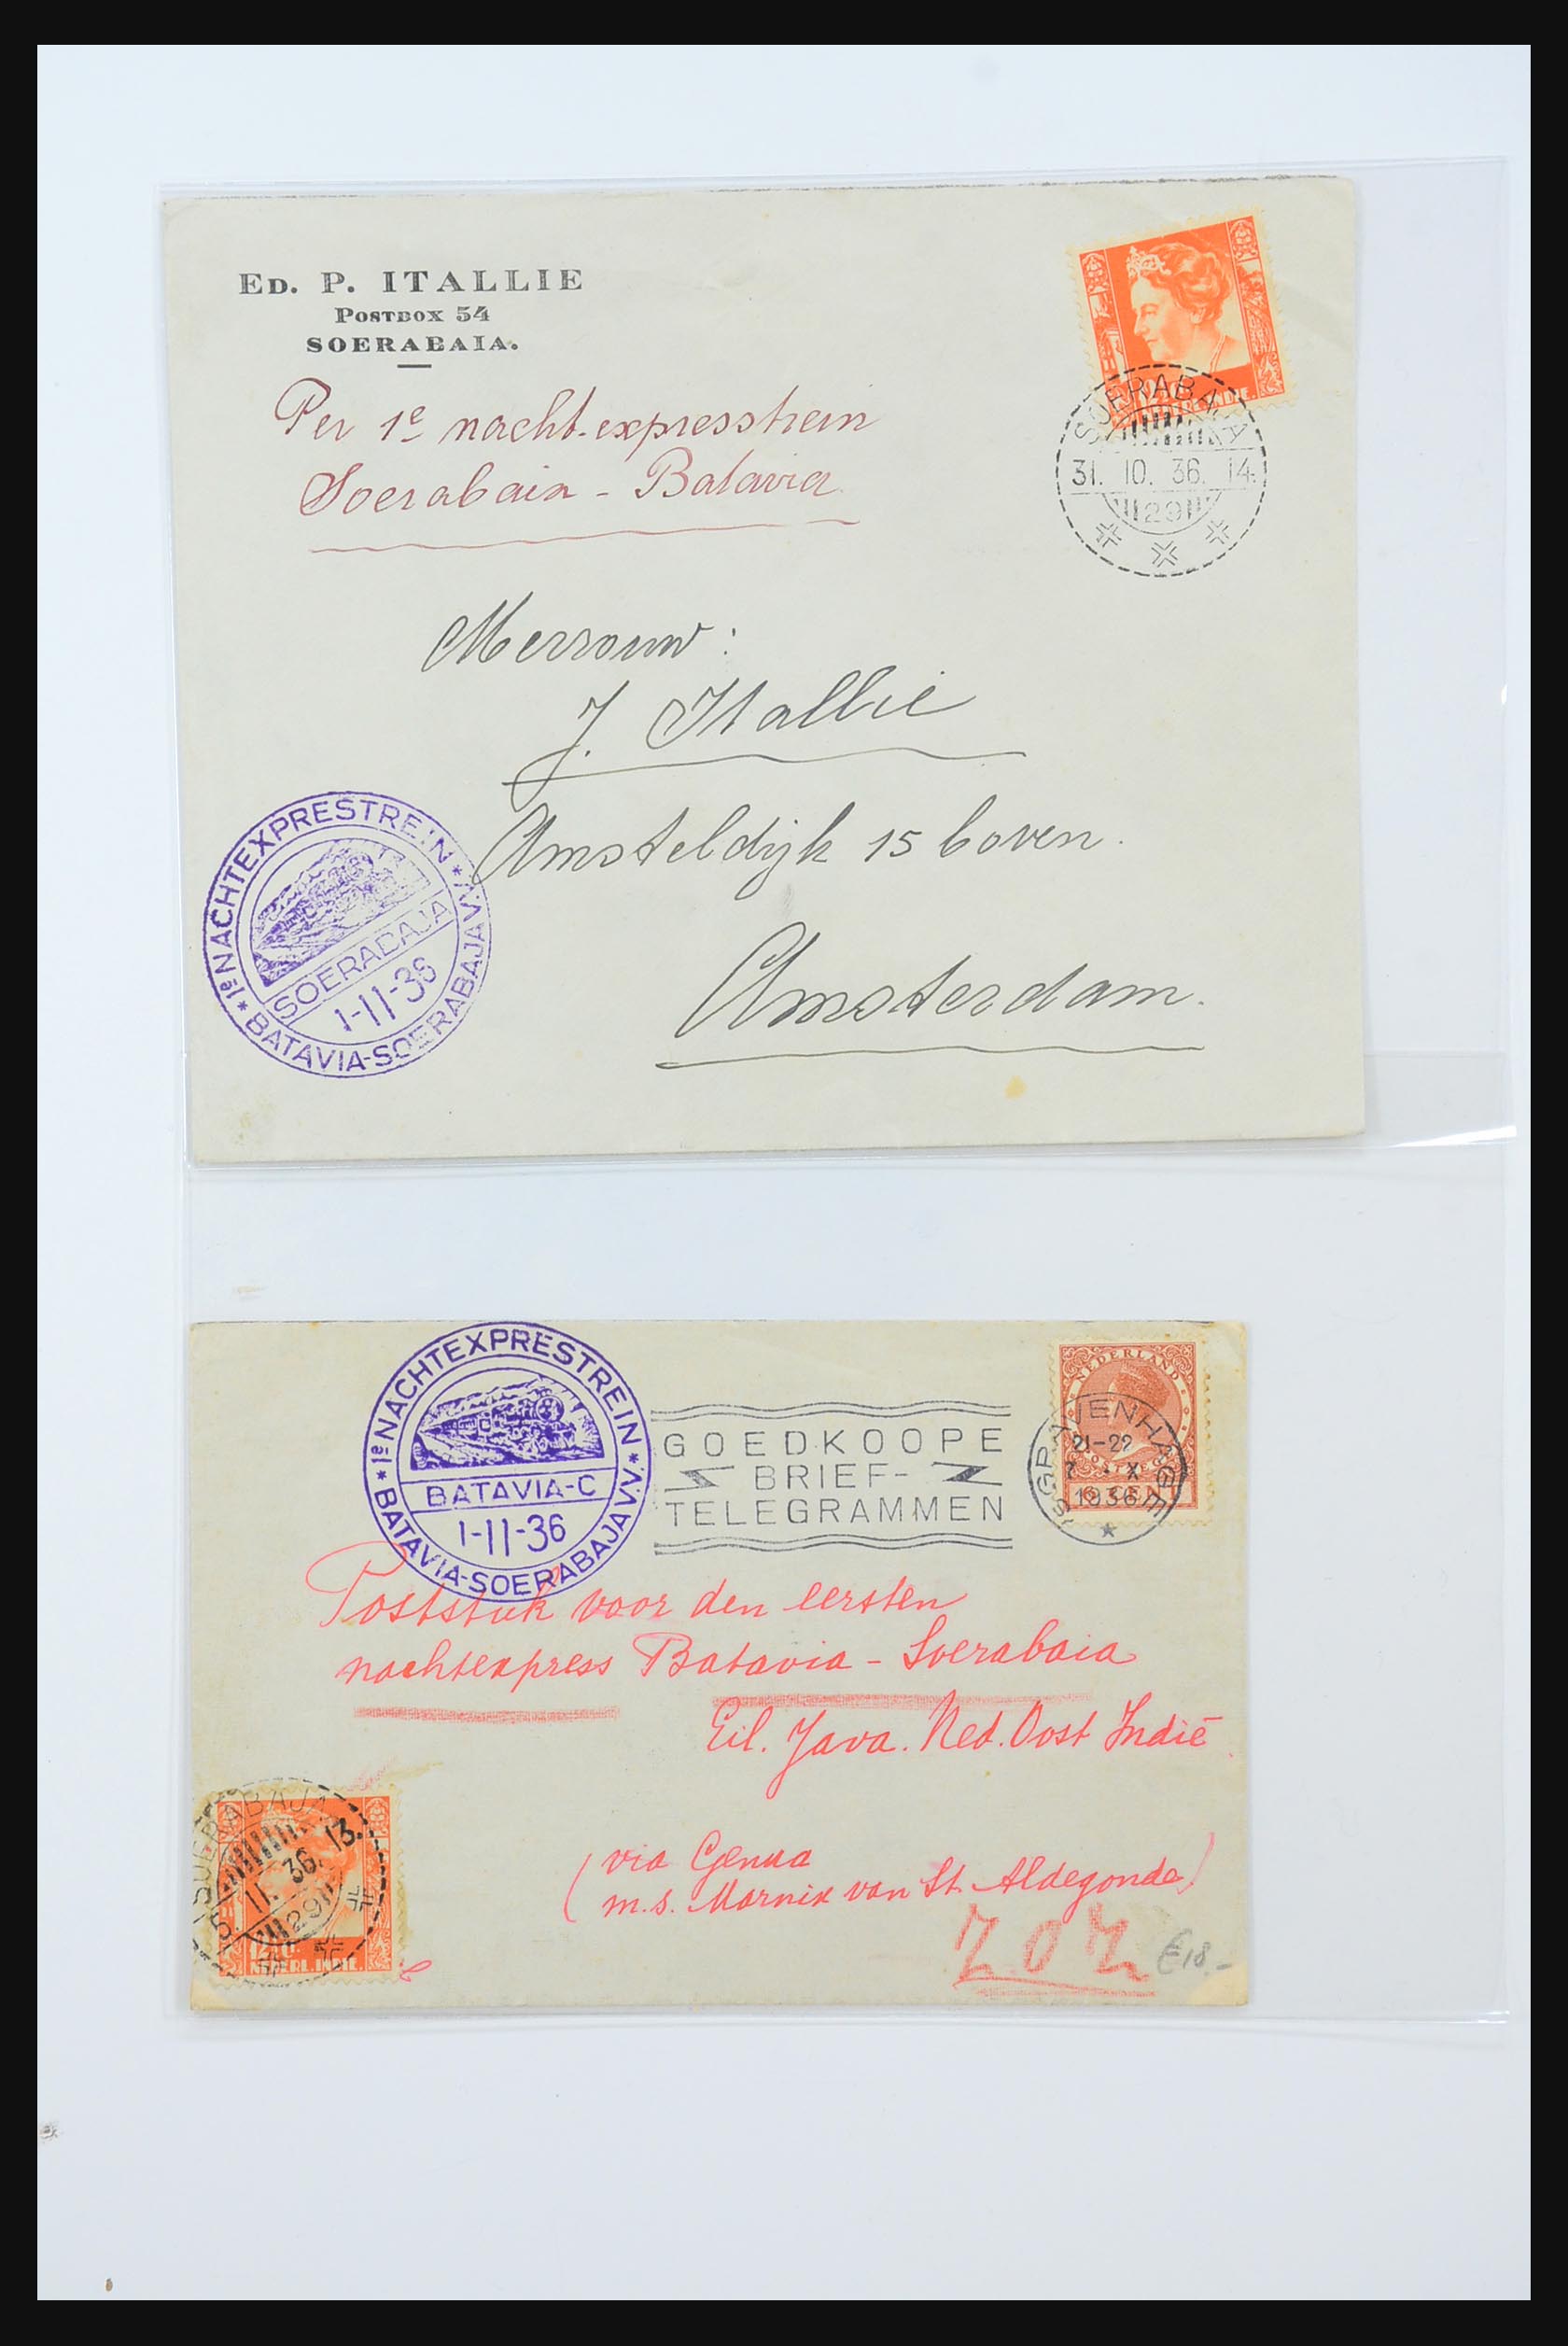 ED. P. ITALLIE
POSTBOX 54
SOERABAIA.
Per 1e nacht-expresstrein
Soerabaia - Batavia
SOERABAJA
31. 10. 36. 14.
29
Mevrouw:
J. Itallie
Amsteldijk 15 boven.
Amsterdam.
* 1e NACHTEXPRESTREIN *
SOERABAJA
1-11-36
BATAVIA-SOERABAJA V.V.
* 1e NACHTEXPRESTREIN *
BATAVIA-C
1-11-36
BATAVIA-SOERABAJA V.V.
GOEDKOOPE
BRIEF-
TELEGRAMMEN
NEDERLAND
'SGRAVENHAGE
21-22
X
1936
Poststuk voor den eersten
nachtexpress Batavia - Soerabaia
Eil. Java. Ned. Oost Indië
(via Genua
m.s. Marnix van St. Aldegonde)
SOERABAJA
5. 11. 36. 13.
29
NEDERL. INDIE.
Z.O.Z.
€18.-